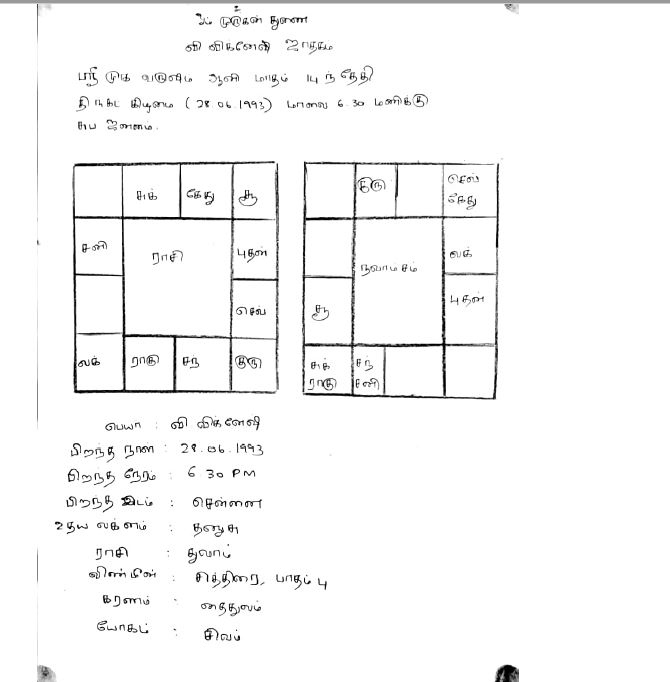 முருகன் துணை
வி விக்னேஷ் ஜாதகம்
ஸ்ரீ முக வருஷம் ஆனி மாதம் 14 ந் தேதி
திங்கட் கிழமை (28.06.1993) மாலை 6.30 மணிக்கு
சுப ஜனனம்.
சுக் கேது சூ
சனி ராசி புதன்
செவ்
லக் ராகு சந் குரு
குரு செவ் கேது
நவாம்சம் லக்
சூ புதன்
சுக் ராகு சந் சனி
பெயர் : வி விக்னேஷ்
பிறந்த நாள் : 28.06.1993
பிறந்த நேரம் : 6 30 PM
பிறந்த இடம் : சென்னை
உதய லக்னம் : தனுசு
ராசி : துலாம்
விண்மீன் : சித்திரை, பாதம் 4
கரணம் : தைதுலம்
யோகம் : சிவம்